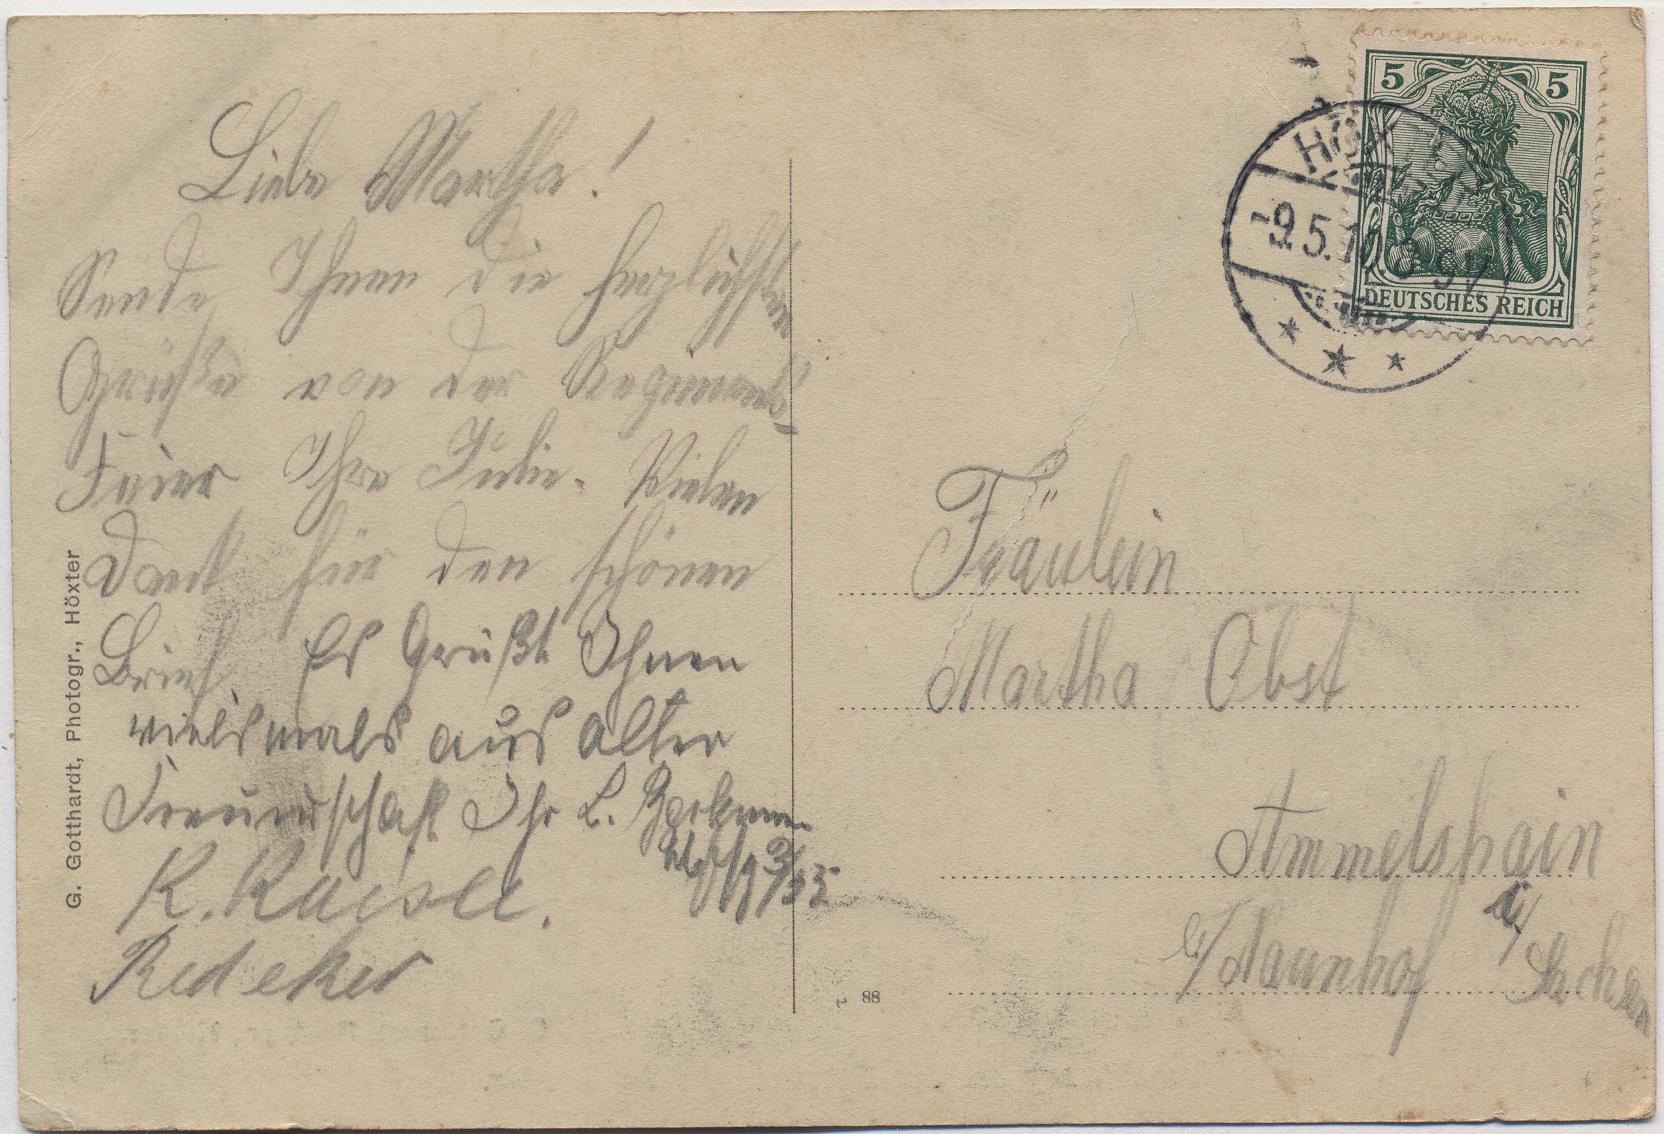 Liebe Martha!
Sende Ihnen die herzlichsten
Grüße von der Regiments
Feier Ihre Julie. Vielen
Dank für den schönen
Brief Es Grüßt Ihnen
vielsmals aus alter
Freundschaft Ihr L.
R.
Redeker
G. Gotthardt, Photogr., Höxter
5 5
DEUTSCHES REICH
HÖX
-9.5.10
Fräulein
Martha Obst
Ammelshain
b/Naunhof i/Sachsen
88